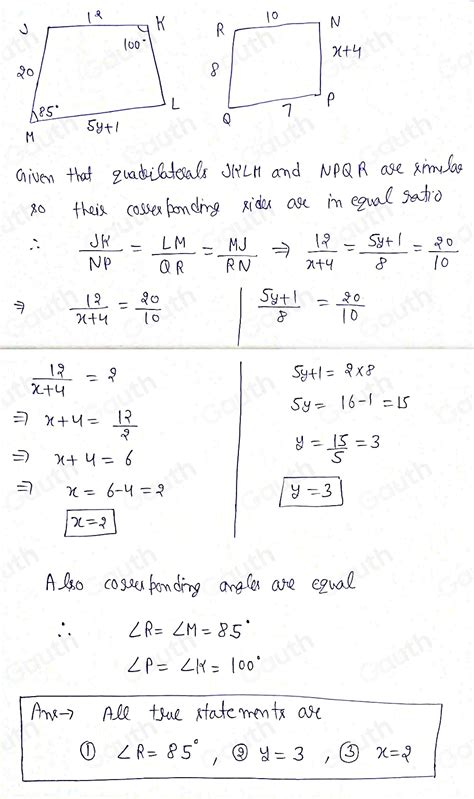 J 12 K R 10 N
100° x+4
20 8
85° L P
M 5y+1 Q 7
Given that quadrilaterals JKLM and NPQR are similar
so their corresponding sides are in equal ratio
∴ JK/NP = LM/QR = MJ/RN ⇒ 12/x+4 = 5y+1/8 = 20/10
⇒ 12/x+4 = 20/10 | 5y+1/8 = 20/10
12/x+4 = 2
⇒ x+4 = 12/2
⇒ x+4 = 6
⇒ x = 6-4 = 2
x=2
5y+1 = 2x8
5y = 16-1 = 15
y = 15/5 = 3
y=3
Also corresponding angles are equal
∴ ∠R = ∠M = 85°
∠P = ∠K = 100°
Ans→ All true statements are
① ∠R = 85°, ② y = 3, ③ x=2
Gauth